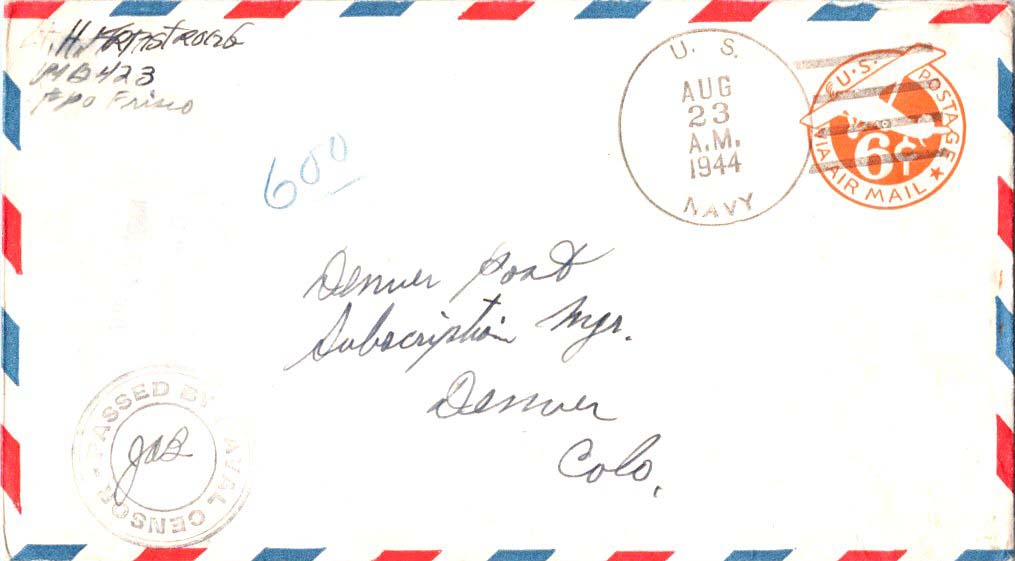 H. ARMSTRONG
423
FPO Frisco
600
U. S.
AUG
23
A.M.
1944
NAVY
U.S. POSTAGE
6¢
VIA AIR MAIL
Denver Post
Subscription Mgr.
Denver
Colo.
PASSED BY NAVAL CENSOR